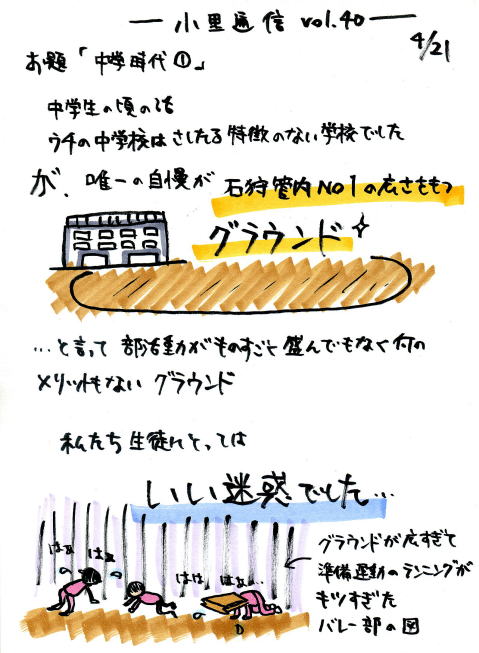 小里通信 vol.40
4/21
お題「中学時代①」
中学生の頃の話
ウチの中学校はさしたる特徴のない学校でした
が、唯一の自慢が 石狩管内NO1の広さをもつ
グラウンド
…と言って 部活動がものすごく盛んでもなく何の
メリットもない グラウンド
私たち生徒にとっては
いい迷惑でした…
はぁ はぁ
はぁ はぁ…
グラウンドが広すぎて
準備運動のランニングが
キツすぎた
バレー部の図